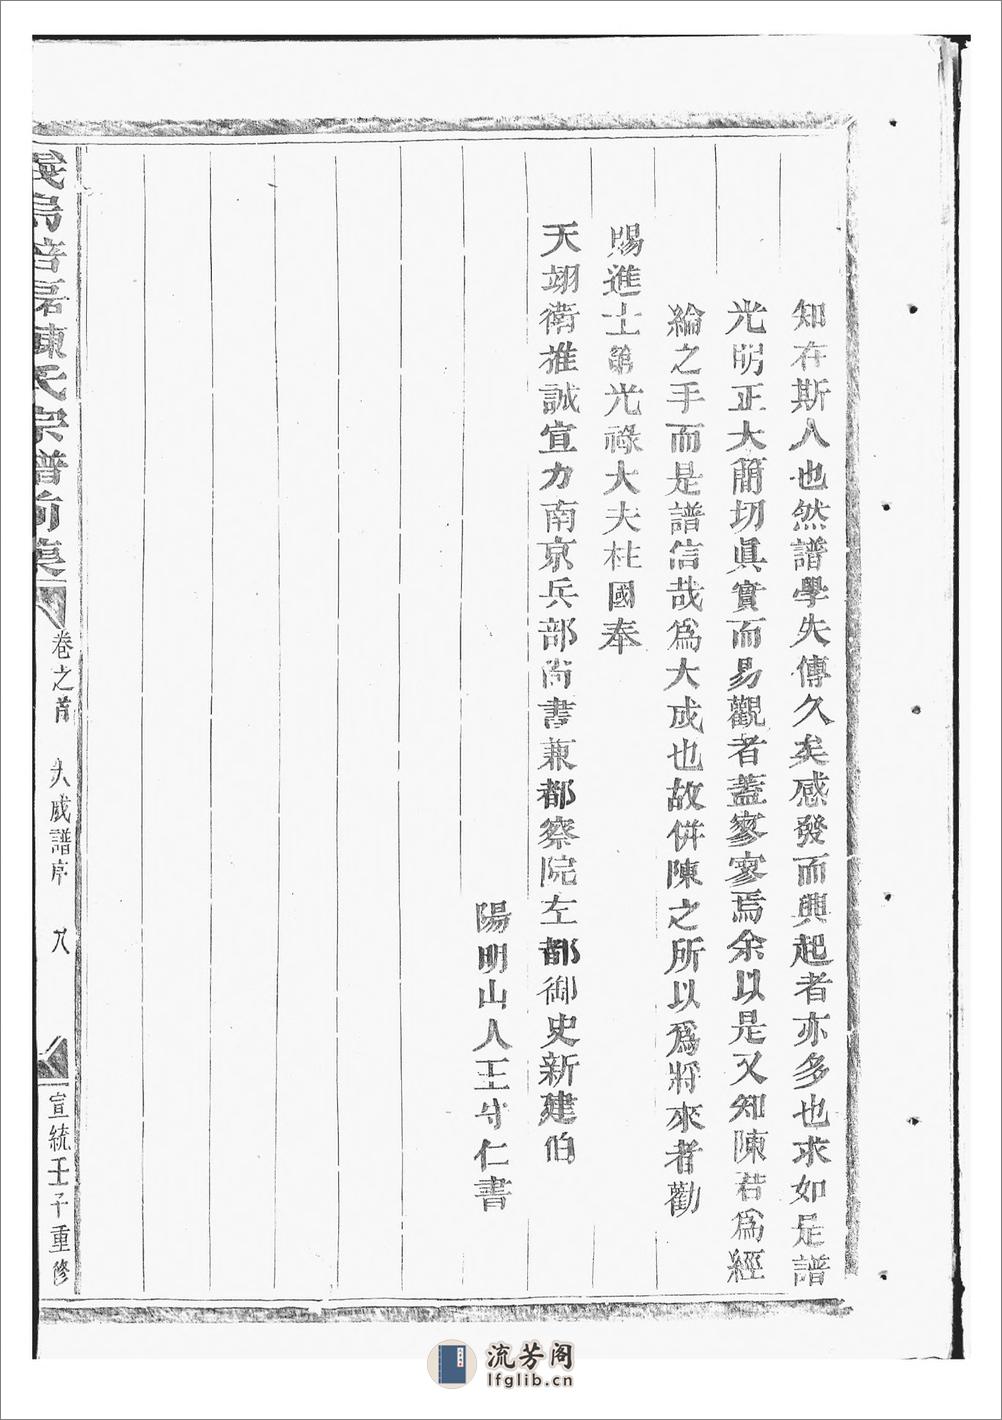 知在斯人也然譜學失傳久矣感發而興起者亦多也求如是譜
光明正大簡切眞實而易觀者蓋寥寥焉余以是又知陳君爲經
綸之手而是譜信哉爲大成也故併陳之所以爲將來者勸
賜進士第光祿大夫柱國奉
天翊衛推誠宣力南京兵部尚書兼都察院左都御史新建伯
陽明山人王守仁書
義烏培磊陳氏宗譜前集
卷之首 大成譜序 九
宣統壬子重修
流芳阁
lfglib.cn